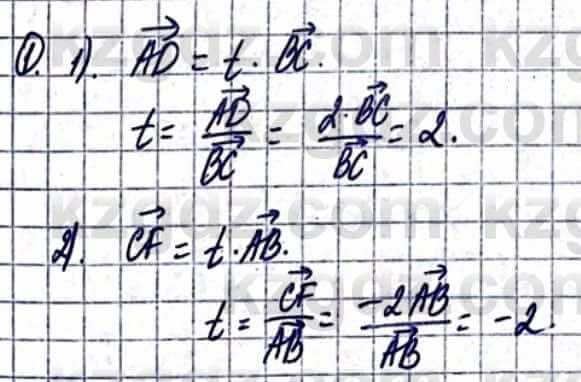 ①. 1). $\overrightarrow{AD} = t \cdot \overrightarrow{BC}$.
$t = \frac{\overrightarrow{AD}}{\overrightarrow{BC}} = \frac{2 \cdot \overrightarrow{BC}}{\overrightarrow{BC}} = 2$.
2). $\overrightarrow{CF} = t \cdot \overrightarrow{AB}$.
$t = \frac{\overrightarrow{CF}}{\overrightarrow{AB}} = \frac{-2\overrightarrow{AB}}{\overrightarrow{AB}} = -2$.